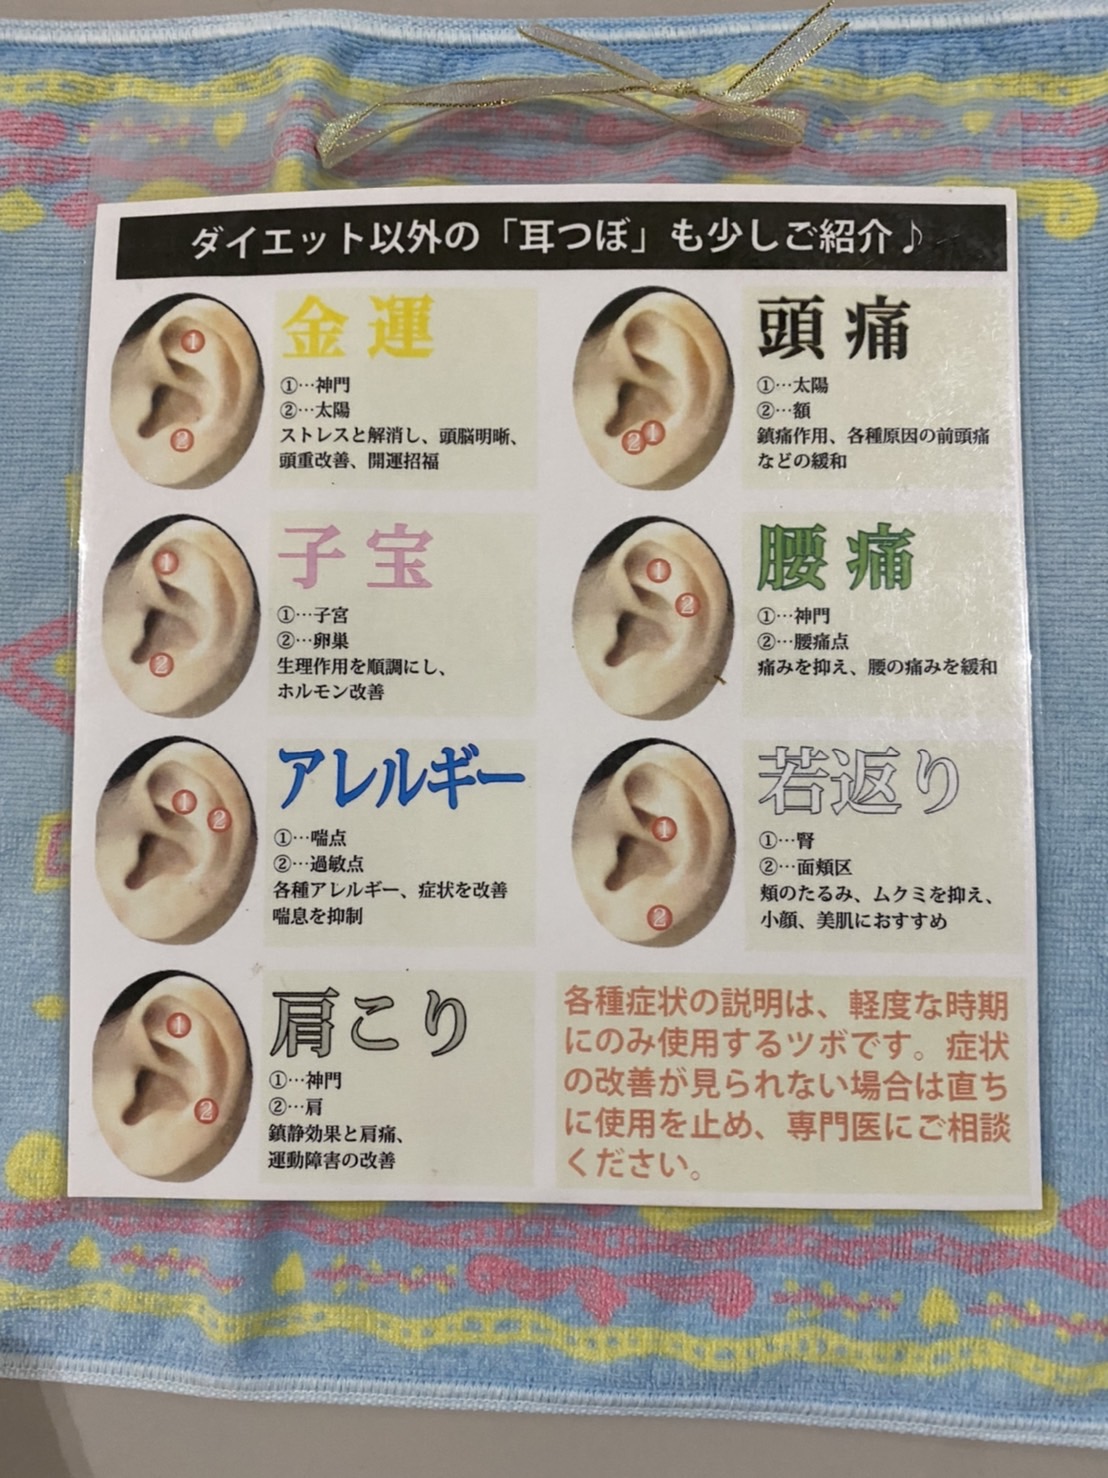 ダイエット以外の「耳つぼ」も少しご紹介♪
金運
①…神門
②…太陽
ストレスと解消し、頭脳明晰、
頭重改善、開運招福
①
②
頭痛
①…太陽
②…額
鎮痛作用、各種原因の前頭痛
などの緩和
②①
子宝
①…子宮
②…卵巣
生理作用を順調にし、
ホルモン改善
①
②
腰痛
①…神門
②…腰痛点
痛みを抑え、腰の痛みを緩和
①
②
アレルギー
①…喘点
②…過敏点
各種アレルギー、症状を改善
喘息を抑制
①
②
若返り
①…腎
②…面頬区
頬のたるみ、ムクミを抑え、
小顔、美肌におすすめ
①
②
肩こり
①…神門
②…肩
鎮静効果と肩痛、
運動障害の改善
①
②
各種症状の説明は、軽度な時期
にのみ使用するツボです。症状
の改善が見られない場合は直ち
に使用を止め、専門医にご相談
ください。